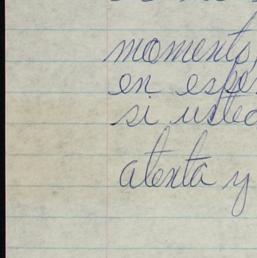 momento,
en espe
si usted
atenta y